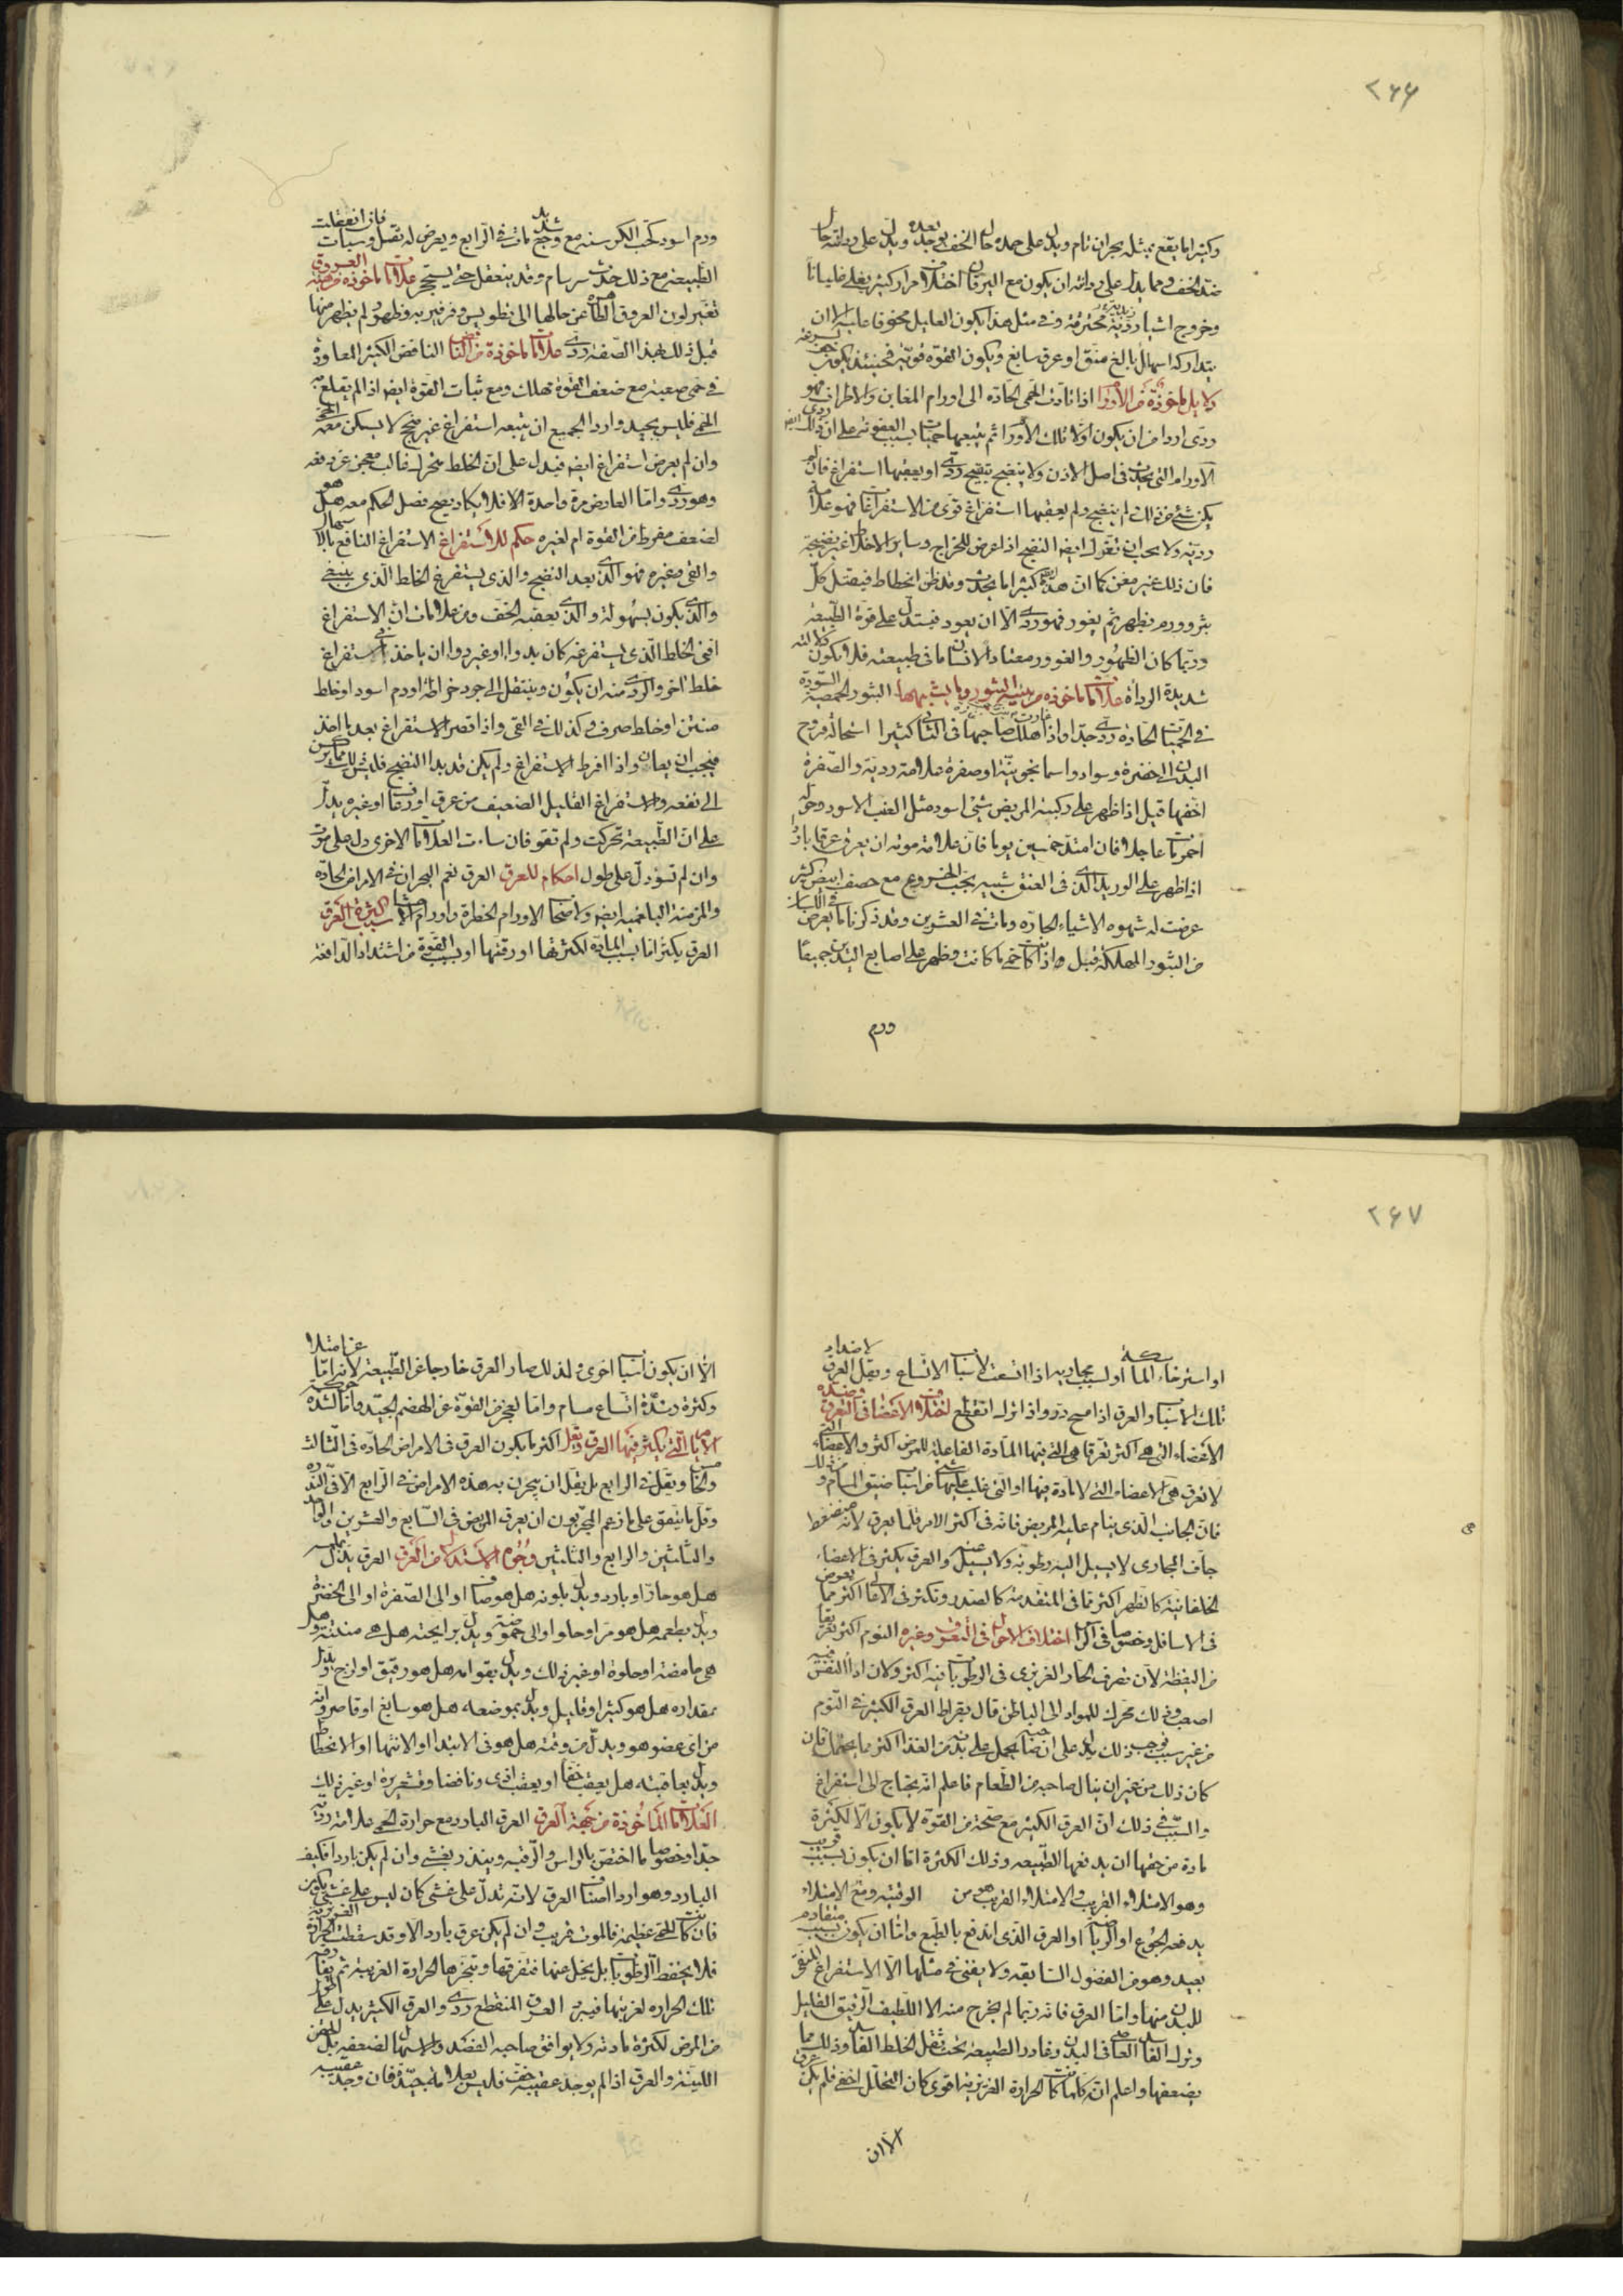 ٢٦٦
وكثيرا ما يقع بمثله بحران تام ويدل على حمده حال الخف يوجد بعده ويدل على رداءته حال
ضد الخف ومما يدل على رداءته ان يكون مع اليرقان اختلاف مرار كثير يغلي غليانا
وخروج اشياء ردية محترقة وفي مثل هذا يكون العليل مخوفا عليه الا ان
يتداركه اسهال بالغ منق او عرق سابغ ويكون القوة قوية فحينئذ يكون
دلايل ماخوذة من الاورام اذا تادت الحمى الحادة الى اورام المغابن والاطراف فهو
ردى اردا من ان يكون اولا تلك الاورام ثم يتبعها حميات بسبب العفونة على ان ذلك ردى ايضا
الاورام التى يحدث فى اصل الاذن ولا ينضج بتقيح ردى او يعقبها استفراغ فان لم
يكن شئ من ذلك لم ينضج ولم يعقبها استفراغ قوى من الاستفراغات فهو علامة
ردية ولا يجب ان تعول ايضا النضج اذا عرض للخراج وساير الاخلاط غير نضيجة
فان ذلك غير مغن كما ان هذه كثيرا ما يحدث وقد ظن انحطاط فيقتل كل
بثر وورم يظهر ثم يغور فهو ردى الا ان يعود فيستدل على قوة الطبيعة
وربما كان الظهور والغور معتادا لانسان ما فى طبيعته فلا يكون دلالته
شديدة الرداءة علامات ماخوذة من هيئة البثور وما يشبهها البثور الحمصية السودة
فى الحميات الحادة ردى جدا واذا غارت هلك صاحبها فى الثانى كثيرا استحالة قروح
البدن الى خضرة وسواد واسمانجونية او صفرة علامة ردية والصفرة
اخفها قيل اذا ظهر على ركبة المريض شئ اسود مثل العنب الاسود وحوله
احمر مات عاجلا فان امتد خمسين يوما فان علامة موته ان يعرق عرقا باردا
اذا ظهر على الوريد الذى فى العنق شبيه بحب الخروع مع حصف ابيض كثير
عرضت له شهوة الاشياء الحادة ومات فى العشرين وقد ذكرنا ما يعرض فى اللسان
من البثور المهلكة قيل واذا كانت حمى ما كانت وظهر على اصابع اليدين جميعا
ورم
ورم اسود كحب الكرسنة مع وجع شديد مات فى الرابع ويعرض له ثقل وسبات فان انعقلت
الطبيعة مع ذلك حدث سرسام وقد ينعقل حتى يستحجر علامات ماخوذة من جهة العروق
تغير لون العروق الظاهرة عن حالها الى تطويس وفرفيرية وظهور لم يظهر منها
قبل ذلك بهذا الصفة ردى علامات ماخوذة من النافض النافض الكثير المعاودة
فى حمى صعبة مع ضعف القوة مهلك ومع ثبات القوة ايضا اذا لم يقلع به
الحمى فليس بجيد واردا الجميع ان يتبعه استفراغ غير منجح لا يسكن معه الحمى
وان لم يعرض استفراغ ايضا فيدل على ان الخلط متحرك غالب معجز عن دفعه
وهو ردى واما العارض مرة واحدة الا قلا يكاد يصح فصل الحكم معه هل هو
لضعف مفرط من القوة ام لغيره حكم للاستفراغ الاستفراغ النافع بالاسهال
والقئ وغيره فهو الذى بعد النضج والذى يستفرغ الخلط الذى ينبغى
والذى يكون بسهولة والذى يعقبه الخف ومن علامات ان الاستفراغ
افنى الخلط الذى يستفرغه كان بدواء او غير دواء ان ياخذ فى استفراغ
خلط اخر والردى منه ان يكون وينتقل الى جرد خراطة او دم اسود او خلط
منتن او خلط صرف وكذلك فى القئ واذا قصر الاستفراغ بعد ما اخذ
فيجب ان يعان واذا افرط الاستفراغ ولم يكن قد بدا النضج فليس ذلك مما يركن
الى نفعه والاستفراغ القليل الضعيف من عرق او رعاف او غيره يدل
على ان الطبيعة تحركت ولم تقو فان ساءت العلامات الاخرى دل على موت
وان لم تسؤ دل على طول احكام للعرق العرق نعم البحران فى الامراض الحادة
والمزمنة البلغمية ايضا ولاصحاب الاورام الخطرة واورام الاحشا سبب كثرة العرق
العرق يكثر اما بسبب المادة لكثرتها او رقتها او بسبب القوة من اشتداد الدافعة
٢٦٧
او استرخاء الماسكة او لسبب مجاريه اذا اتسعت لاسباب الاتساع ويقل العرق لاضداد
تلك الاسباب والعرق اذا مسح در واذا ترك انقطع اختلاف الاعضا فى العرق وضده
الاعضاء التى هى اكثر تعرقا هى التى فيها المادة الفاعلة للمرض اكثر والاعضاء التى
لا تعرق هى الاعضاء التى لا مادة فيها او التى غلب عليها شئ من اسباب ضيق المسام ومن ذلك
فان الجانب الذى ينام عليه المريض فانه فى اكثر الامر قلما يعرق لانه منضغط
جاف المجارى لا يسيل اليه رطوبة ولا يسيل عنه والعرق يكثر فى الاعضاء
الخلفانية كالظهر اكثر مما فى المتقدمة كالصدر ويكثر فى الاعالى اكثر مما يعرض
فى الاسافل وخصوصا فى الراس اختلاف الاحوال فى التعرق وغيره النوم اكثر تعريقا
من اليقظة لان تصرف الحار الغريزى فى الرطوبات فيه اكثر ولان اداء النفس فيه
اصعب وذلك محرك للمواد الى الباطن قال بقراط العرق الكثير فى النوم
من غير سبب يوجب ذلك يدل على ان صاحبه يحمل على بدنه من الغذا اكثر مما يحتمل فان
كان ذلك من غير ان ينال صاحبه من الطعام فاعلم انه يحتاج الى استفراغ
والسبب فى ذلك ان العرق الكثير مع صحة من القوة لا يكون الا لكثرة
مادة من حقها ان يدفعها الطبيعة وذلك الكثرة اما ان يكون بسبب قريب
وهو الامتلاء القريب والامتلاء القريب هو من الوقتية ومع الامتلاء
يدفعه الجوع او الرياضة او العرق الذى اندفع بالطبع واما ان يكون بسبب متقادم
بعيد وهو من الفضول السابقة ولا يغنى فى مثلها الا الاستفراغ المنقى
للبدن منها واما العرق فانه ربما لم يخرج منه الا اللطيف الرقيق القليل
وترك الفاسد العاصى فى البدن وغادر الطبيعة تحت ثقل الخلط الفاسد وذلك مما
يضعفها واعلم انه كلما كانت الحرارة الغريزية اقوى كان التحلل اخفى فلم يكن عرق
الا ان
الا ان يكون اسباب اخرى ولذلك صار العرق خارجا عن الطبيعة لانه اما عن امتلاء
وكثرة وشدة اتساع مسام واما لعجز من القوة عن الهضم الجيد واما لشدة حركة
الايام التى يكثر فيها العرق ويقل اكثر ما يكون العرق فى الامراض الحادة فى الثالث
والخامس ويقل فى الرابع بل يقل ان يبحرن به هذه الامراض فى الرابع الا فى الندرة
وقل ما يتفق على ما زعم المجربون ان يعرق المريض فى السابع والعشرين والواحد
والثلثين والرابع والثلثين وجوه الاستدلال من العرق العرق يدل بملمسه
هل هو حار او بارد ويدل بلونه هل هو صاف او الى الصفرة او الى الخضرة
ويدل بطعمه هل هو مر او حلو او الى حموضة ويدل برايحته هل هى منتنة او هل
هى حامضة او حلوة او غير ذلك ويدل بقوامه هل هو رقيق او لزج ويدل
بمقداره هل هو كثير او قليل ويدل بموضعه هل هو سابغ او قاصر وانه
من اى عضو هو ويدل من وقته هل هو فى الابتدا او الانتها او الانحطاط
ويدل بعاقبته هل يعقب خفا او يعقب اذى ونافضا وقشعريرة او غير ذلك
العلامات الماخوذة من جهة العرق العرق البارد مع حرارة الحمى علامة ردية
جدا وخصوصا ما اختص بالراس والرقبة وينذر بغشى وان لم يكن باردا فكيف
البارد وهو اردا اصناف العرق لانه تدل على غشى كان ليس على غشى يكون
فان كانت الحمى عظيمة فالموت قريب وان لم يكن عرق بارد الا وقد سقطت الحرارة الغريزية
فلا يحفظ الرطوبات بل يخلى عنها فتفرقها وتبخرها الحرارة الغريبة ثم يفارقه
تلك الحرارة لغربتها فيبرد العرق المنقطع ردى والعرق الكثير يدل على طول
من المرض لكثرة مادته ولا يوافق صاحبه الفصد والاسهال لضعفه بل الحقن
اللينة والعرق اذا لم يوجد عقيبه خف فليس بعلامة جيدة فان وجد عقيبه